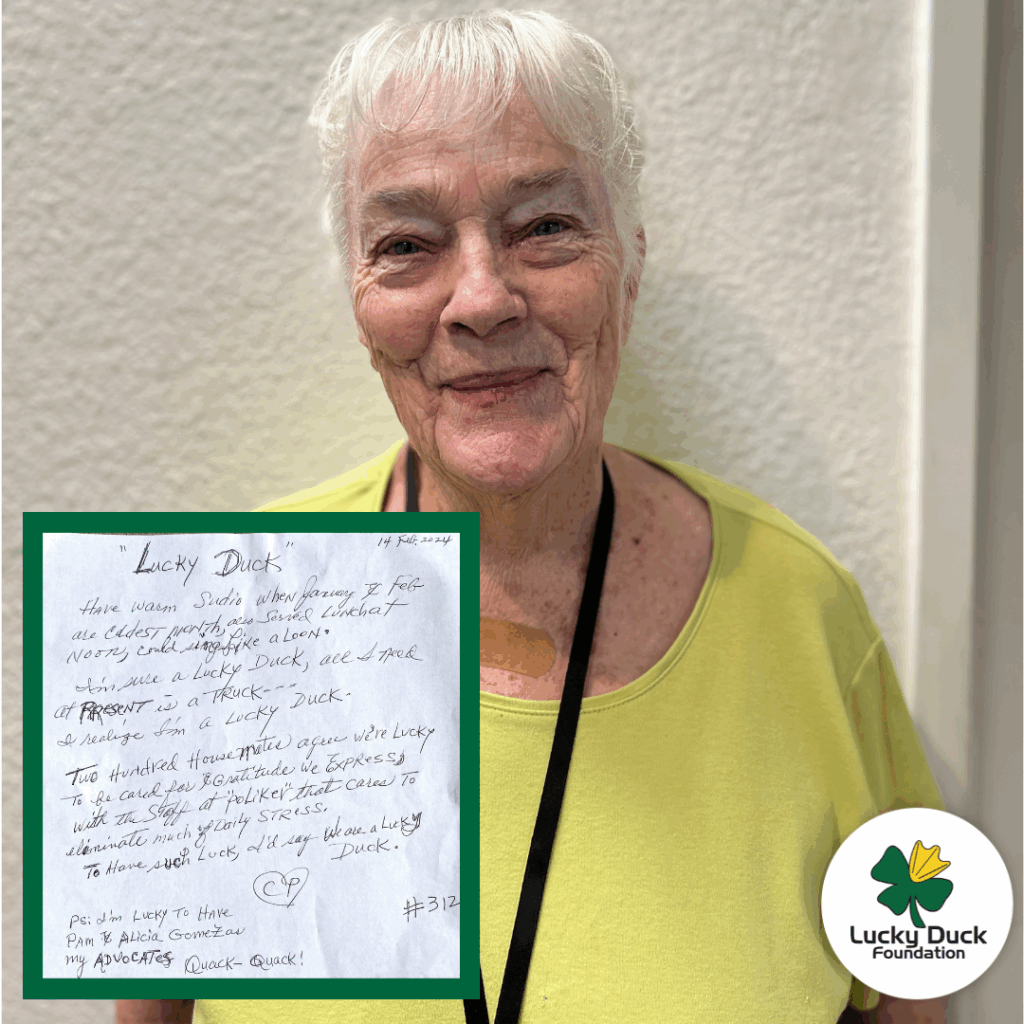 14 Feb. 2024
"Lucky Duck"
Have warm Sudio when January & Feb
are coldest month, also Served Lunch at
Noon, could sing like a Loon.
I'm sure a Lucky Duck, all I need
at PRESENT is a TRUCK---
I realize I'm a Lucky Duck.
Two Hundred Housemates agree we're Lucky
To be cared for & Gratitude we Express,
with the Staff at "PoLiKer" that cares To
eliminate much of Daily STRess.
To Have such Luck, I'd say We are a Lucky
Duck.
CP
#312
PS: I'm Lucky To Have
Pam & Alicia Gomez as
my ADVOCATES Quack-Quack!
Lucky Duck
Foundation